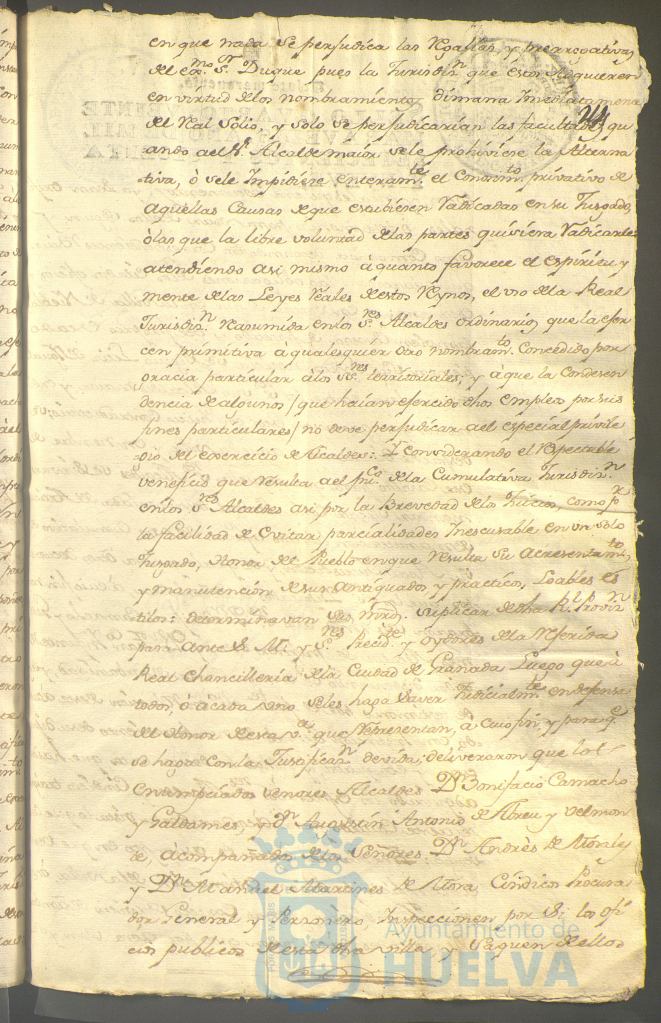 en que nada se perjudica las Regalías, y prerrogativas
del ex.mo S.r Duque pues la Jurisdi.n que éstos adquieren
en virtud de los nombramientos dimana Inmediatamen
214
del Real Solio, y solo se perjudicarian las facultades qu
ando a el S.r Alcalde maior se le prohiviere la Alterna
tiva, ó se le Impidiere enteram.te el Conosim.to privativo de
aquellas Causas de que estubiere Radicadas en su Juzgado,
ò las que la libre voluntad de las partes quiciera Radicarle
atendiendo asi mismo à quanto favorece el espiritu y
mente de las Leyes Reales de estos Reynos, el uso de la Real
Jurisdi.n Reasumida en los S.res Alcaldes ordinarios, que la exer
cen primitiva à qualesquier otro nombram.to Concedido por
gracia particular à los S.res territoriales; y à que la Condesen
dencia de algunos / que haian exercido dhos empleos por sus
fines particulares / no deve perjudicar a el especial privile
gio del exercicio de Alcaldes: Y considerando el Respectable
veneficio que resulta a el pu.co de la Cumulativa Jurisdi.n
en los S.res Alcaldes asi por la Brevedad de los Juicios, como p.r
la facilidad de evitar parcialidades Inescusable en un solo
Juzgado, Honor del Pueblo en que resulta su acresentam.to
y manutención de sus antiquados y practicos, Loables es
tilos: determinavan Ses. Mrds. suplicar de dha R.l Prov.n
para ante S. M. y S.res Presid.te y oydores de la Referida
Real Chancilleria de la Ciudad de Granada Luego que à
todos, ó acada uno se les haga saver Judicialm.te en defensa
del Honor de esta v.a que Representan, à cuio fin y para q.e
se haga con la Justificaz.n devida, deliveraron que los
enumpciados señores Alcaldes D.n Bonifacio Camacho
y Galdames, y D.n Augustin Antonio de Abreu y Velmon
de, acompañados de los Señores D.n Andrès de Morales
y D.n Manuel Martines de Mora, Cindicos Procura
dor General y Personero, Inspeccionen por si los ofi
cios publicos de esta dha villa y saquen de ellos
Ayuntamiento de
HUELVA